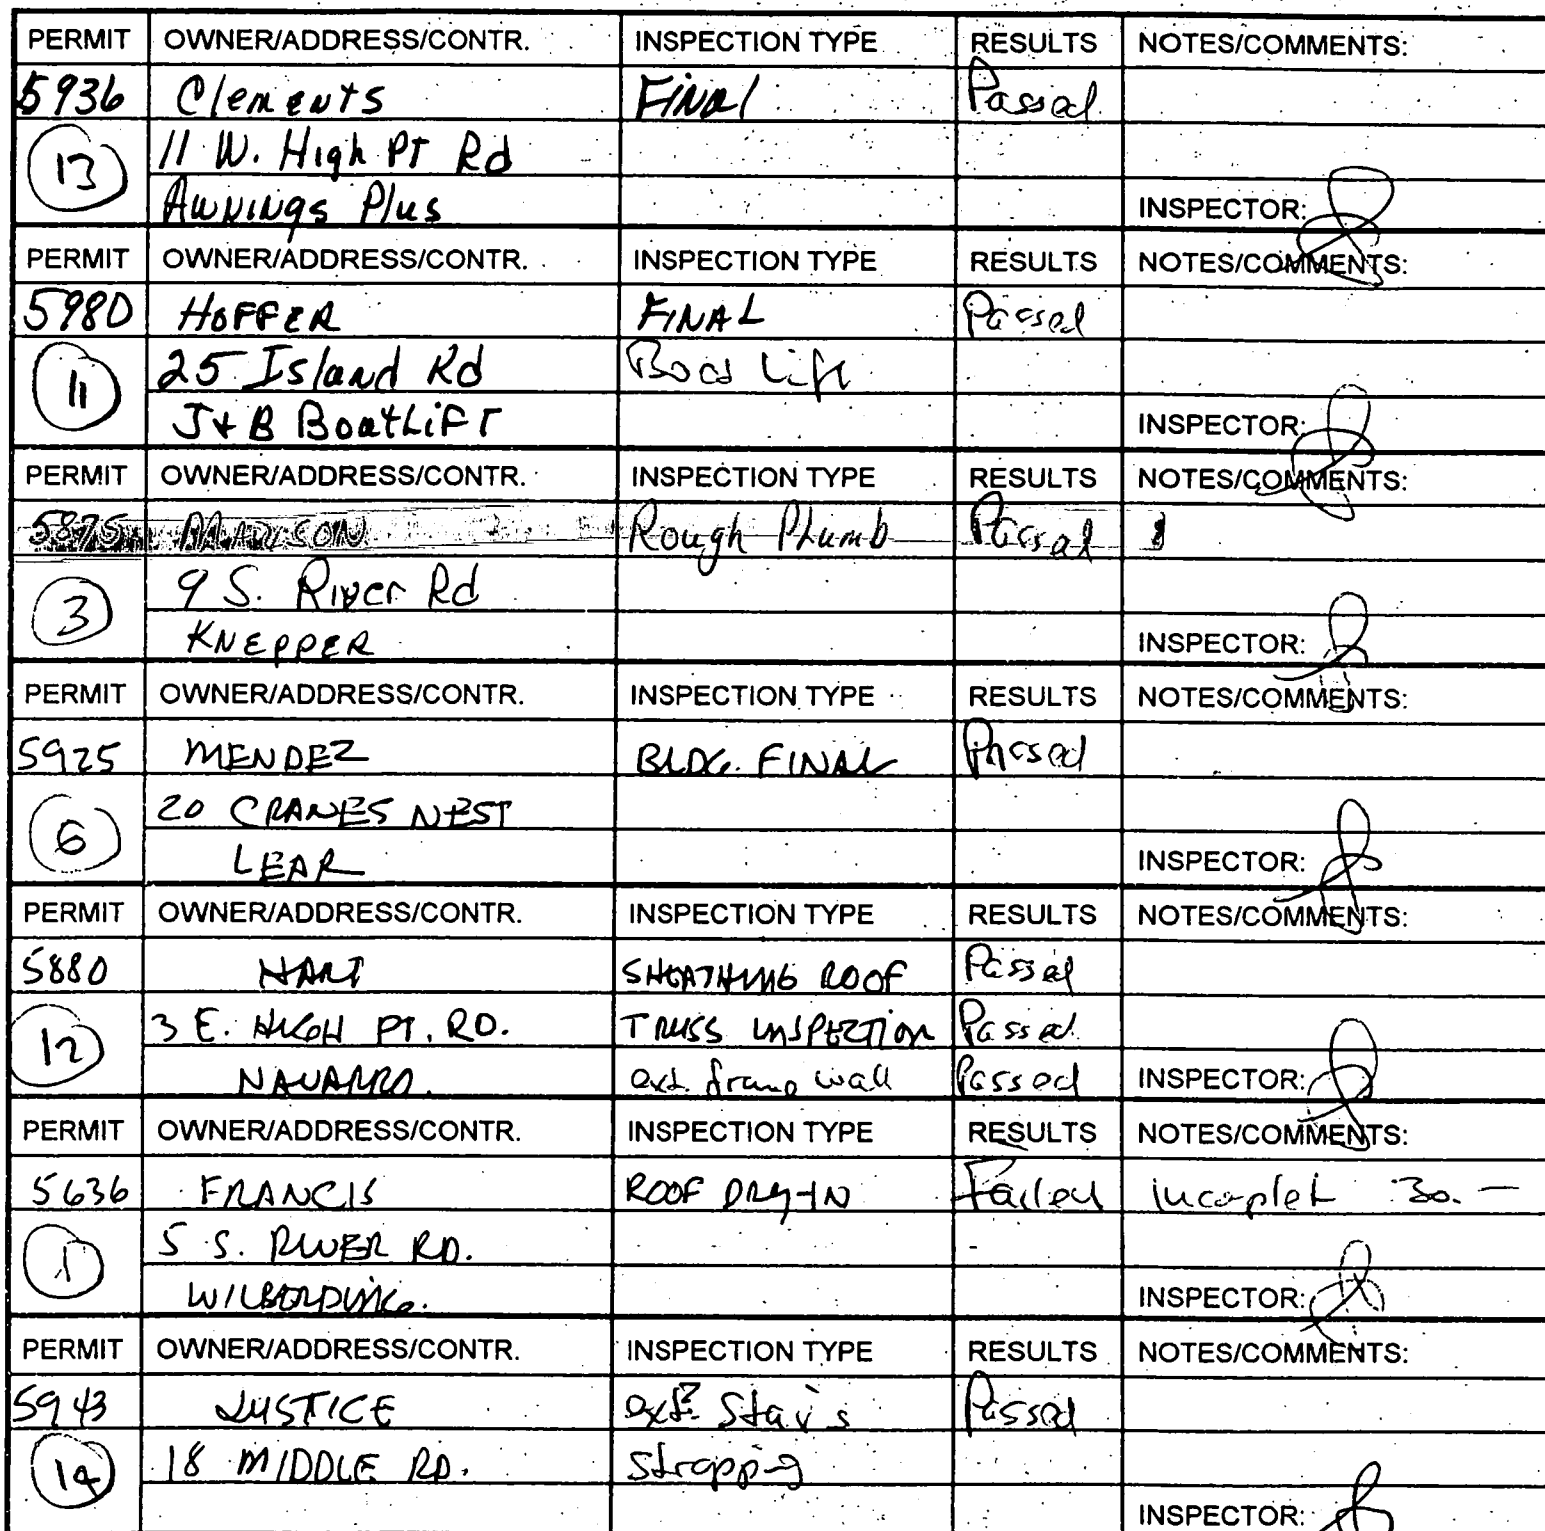 PERMIT OWNER/ADDRESS/CONTR. INSPECTION TYPE RESULTS NOTES/COMMENTS:
5936 Clements FINAL Passed
13 11 W. High PT Rd
Awnings Plus INSPECTOR:
PERMIT OWNER/ADDRESS/CONTR. INSPECTION TYPE RESULTS NOTES/COMMENTS:
5980 HOFFER FINAL Passed
11 25 Island Rd Boat Lift
J+B BoatLiFT INSPECTOR:
PERMIT OWNER/ADDRESS/CONTR. INSPECTION TYPE RESULTS NOTES/COMMENTS:
5875 MADISON Rough Plumb Passed
3 9 S. River Rd
KNEPPER INSPECTOR:
PERMIT OWNER/ADDRESS/CONTR. INSPECTION TYPE RESULTS NOTES/COMMENTS:
5925 MENDEZ BLDG. FINAL Passed
6 20 CRANES NEST
LEAR INSPECTOR:
PERMIT OWNER/ADDRESS/CONTR. INSPECTION TYPE RESULTS NOTES/COMMENTS:
5880 HART SHEATHING ROOF Passed
12 3 E. HIGH PT. RD. TRUSS INSPECTION Passed
NAVARRO. ext. frame wall Passed INSPECTOR:
PERMIT OWNER/ADDRESS/CONTR. INSPECTION TYPE RESULTS NOTES/COMMENTS:
5636 FRANCIS ROOF DRY-IN Failed incomplet 30.—
1 5 S. RIVER RD.
WILBERDING. INSPECTOR:
PERMIT OWNER/ADDRESS/CONTR. INSPECTION TYPE RESULTS NOTES/COMMENTS:
5943 JUSTICE Stairs Passed
14 18 MIDDLE RD. Strapping
INSPECTOR: